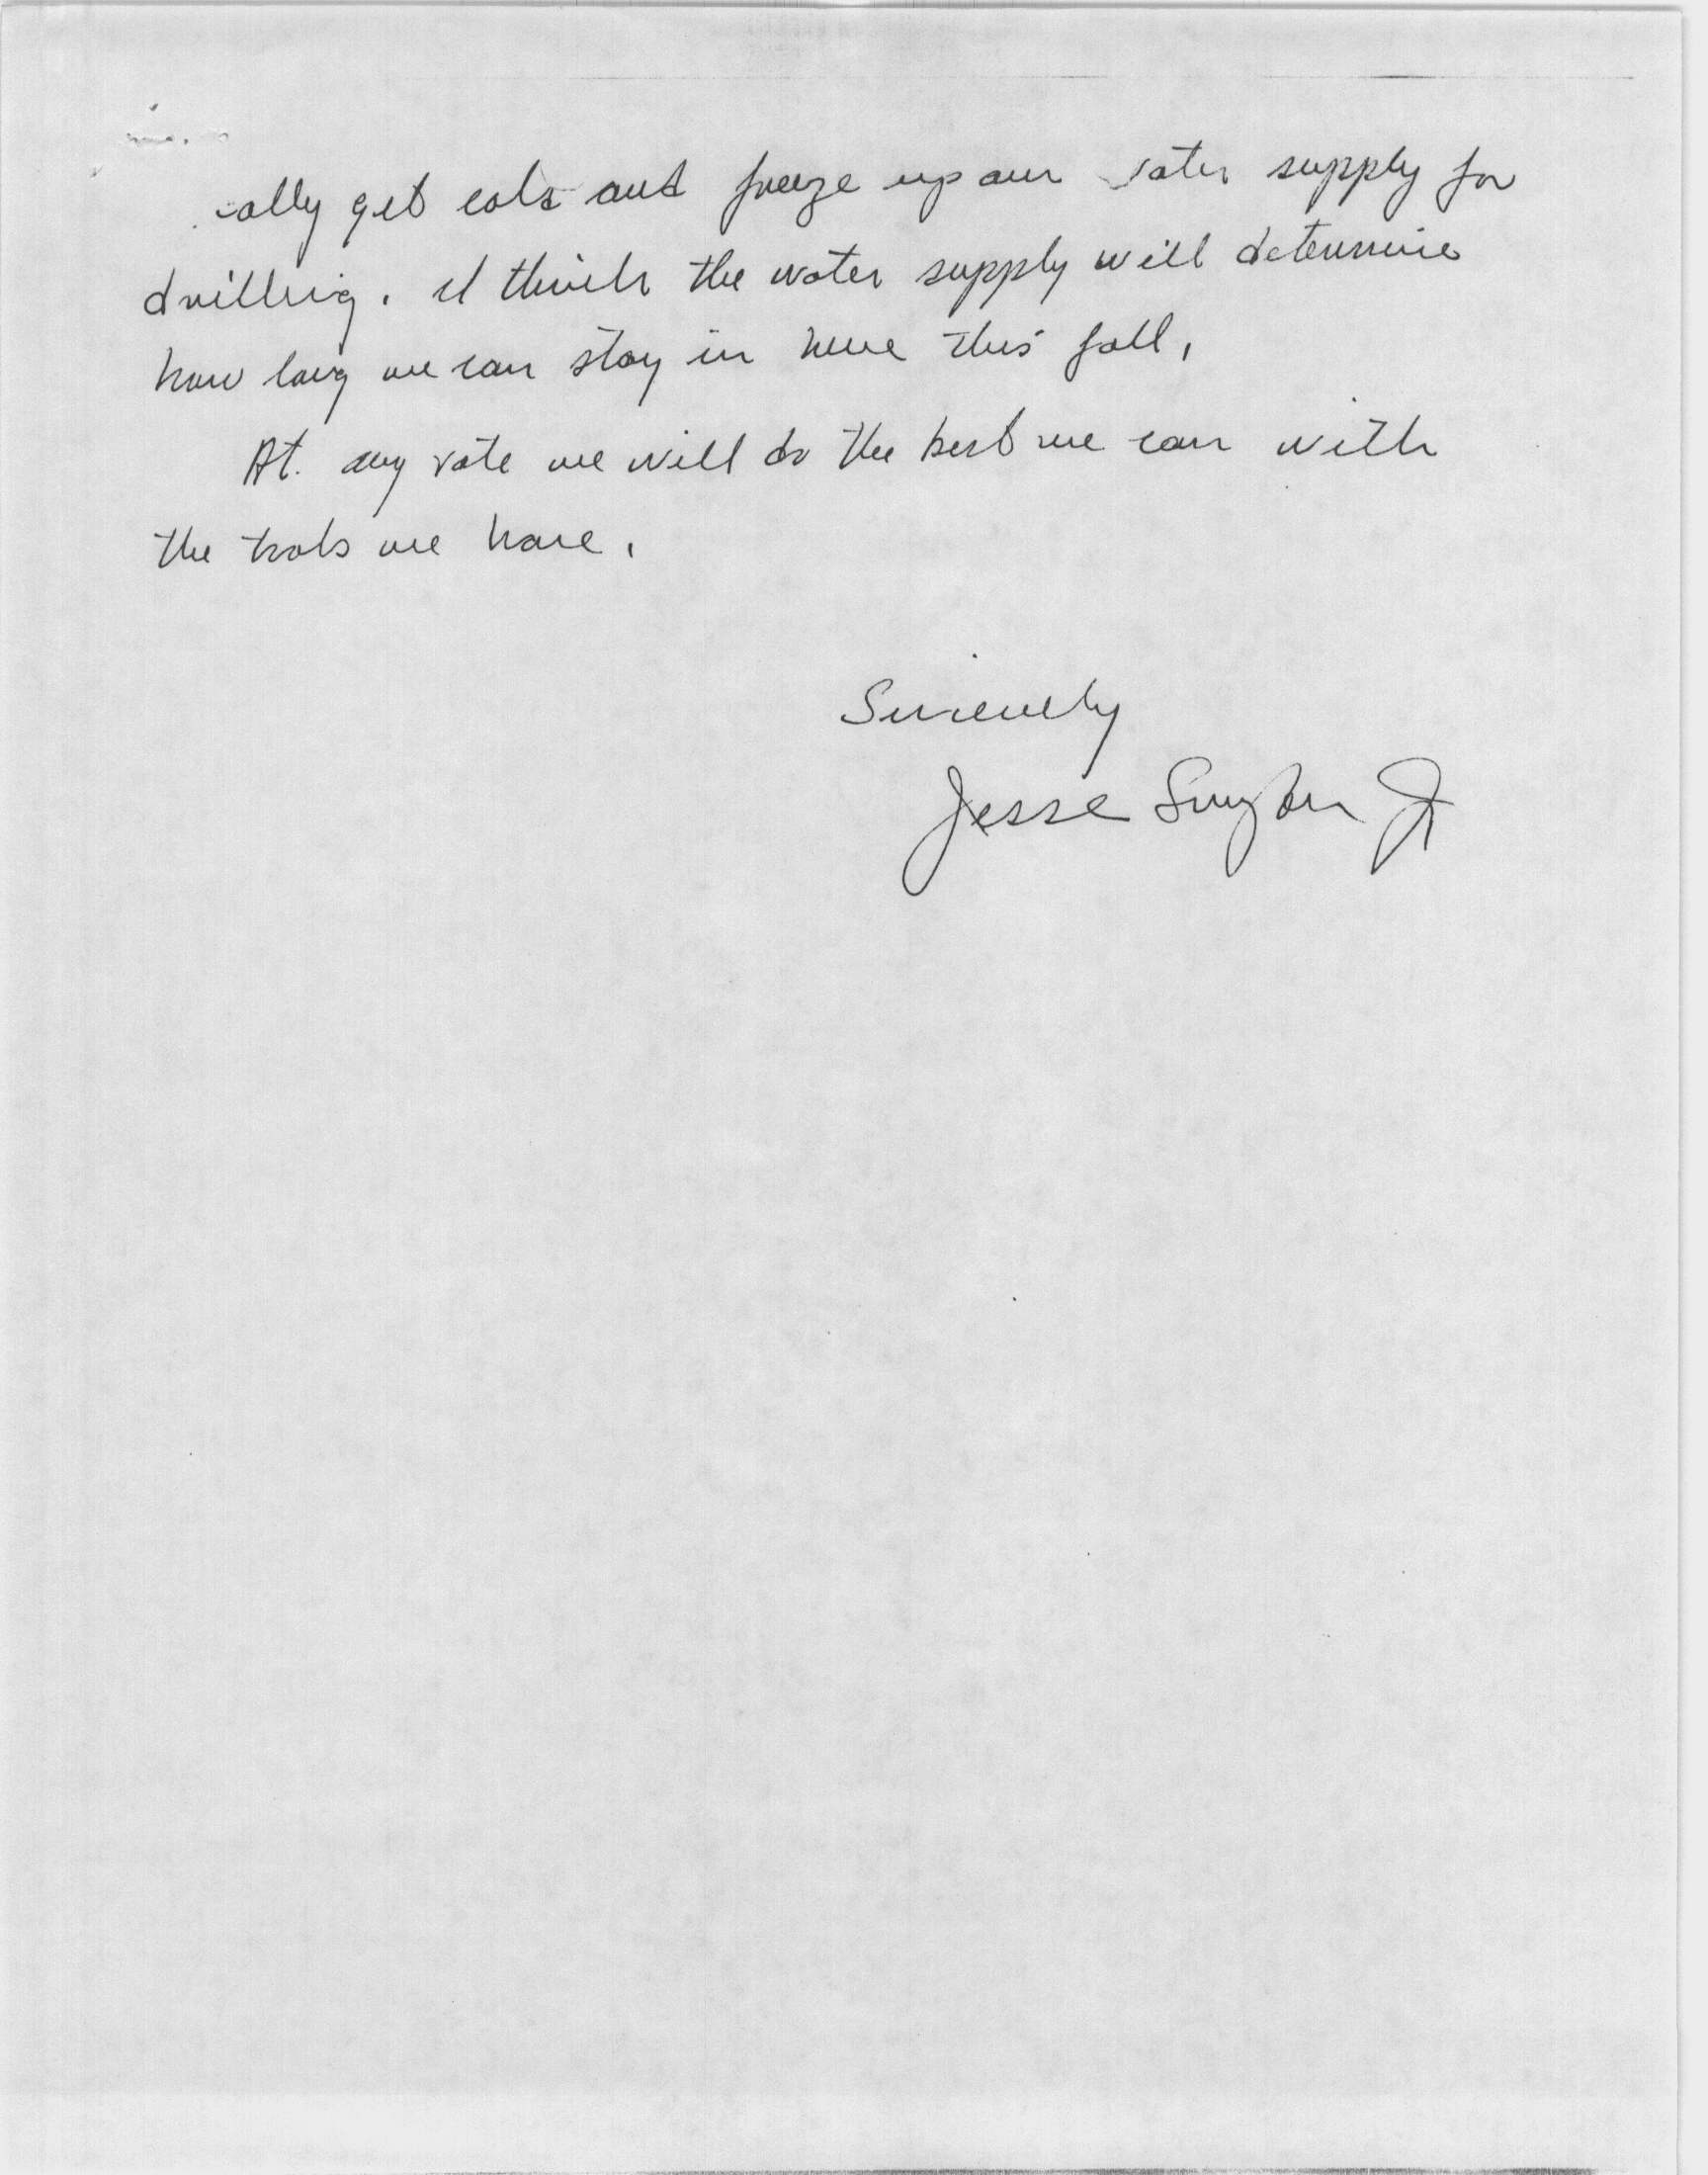 ally get cold and freeze up our water supply for
drilling. I think the water supply will determine
how long we can stay in here this fall,
At. any rate we will do the best we can with
the tools we have.
Sincerely
Jesse Jr